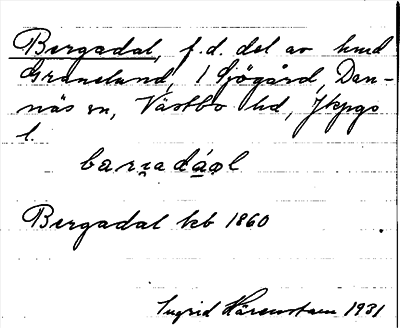 Bergadal, f.d. del av hmd
Granelund, 1 Sjögård, Dan-
näs sn, Västbo hd, Jkpgs
l.
barɪadáɑl
Bergadal kb 1860
Ingrid Härenstam 1931